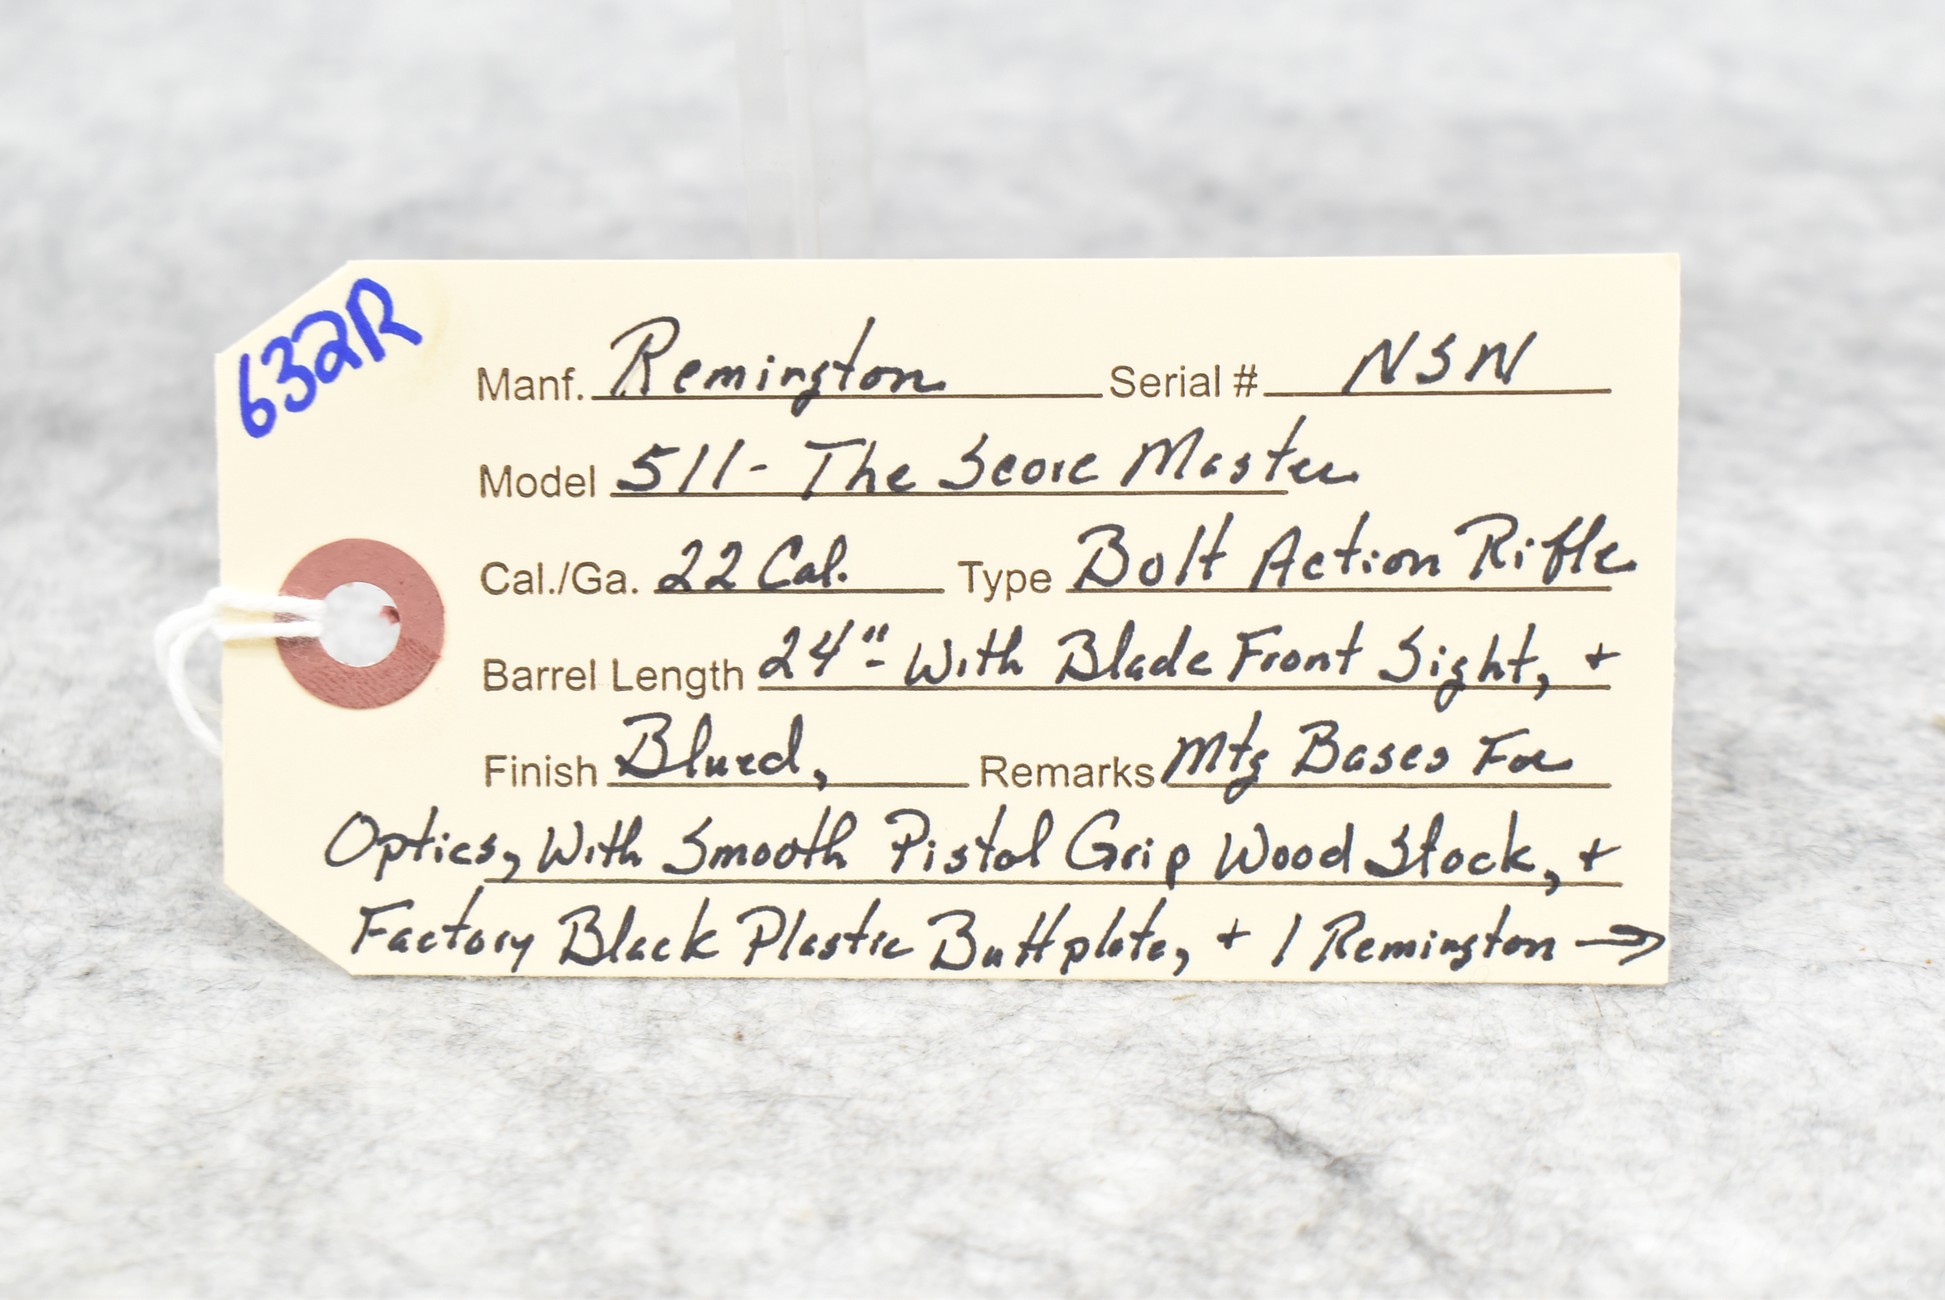 632R
Manf. Remington Serial # NSN
Model 511- The Score Master
Cal./Ga. 22 Cal. Type Bolt Action Rifle
Barrel Length 24"- With Blade Front Sight, +
Finish Blued, Remarks Mtg Bases For
Optics, With Smooth Pistol Grip Wood Stock, +
Factory Black Plastic Buttplate, + 1 Remington →